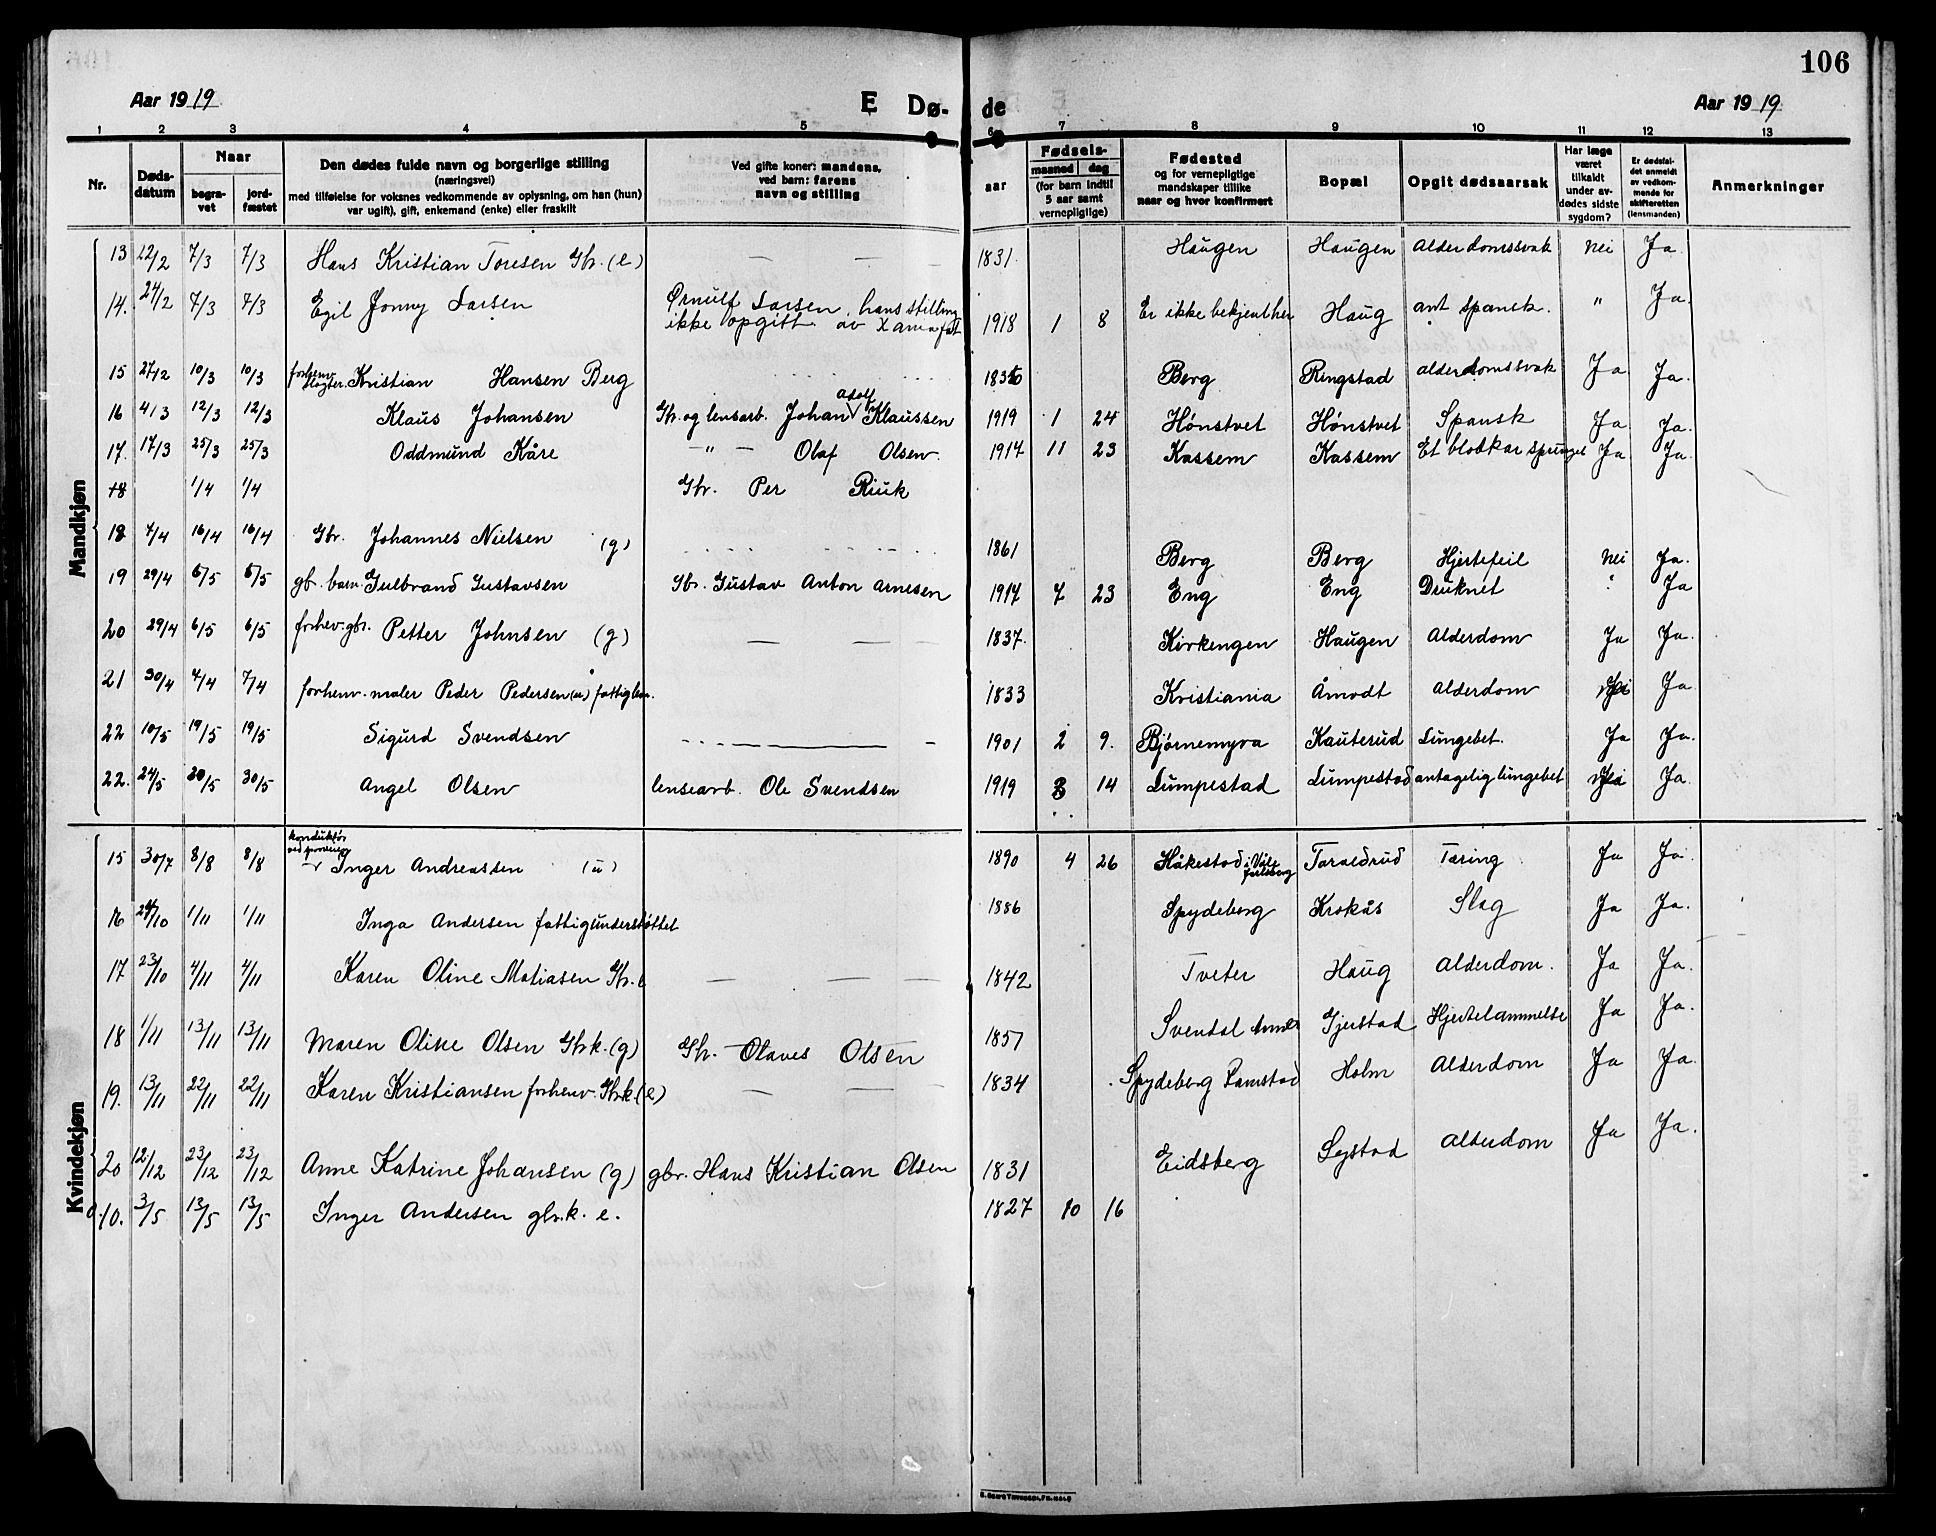 106
Aar 1919 E Dø- de Aar 1919
1 2 3 4 5 6 7 8 9 10 11 12 13
Nr. Døds-datum Naar begra-vet jord-fæstet Den dødes fulde navn og borgerlige stilling (næringsvei) med tilføielse for voksnes vedkommende av oplysning, om han (hun) var ugift, gift, enkemand (enke) eller fraskilt Ved gifte koner: mandens, ved barn: farens navn og stilling aar Fødsels- maaned dag (for barn indtil 5 aar samt vernepligtige) Fødested og for vernepligtige mandskaper tillike naar og hvor konfirmert Bopæl Opgit dødsaarsak Har læge været tilkaldt under av-dødes sidste sygdom? Er dødsfal-det anmeldt av vedkom-mende for skifteretten (lensmanden) Anmerkninger
Mandkjøn
13 22/2 7/3 7/3 Hans Kristian Toresen Gbr. (e) — — — 1831. Haugen Haugen Alderdomssvak Nei Ja
14. 24/2 7/3 7/3 Egil Jonny Larsen Ørnulf Larsen, hans stilling ikke opgitt av 1918 1 8 Er ikke bekjent her Haug ant spansk. " Ja.
15 27/2 10/3 10/3 forhenv. slagter. Kristian Hansen Berg 1836 Berg Ringstad Alderdomssvak Ja Ja.
16 4/3 12/3 12/3 Klaus Johansen Gbr. og lensarb. Johan Adolf Klaussen 1919 1 24 Hønstvet Hønstvet Spansk Ja Ja.
17. 17/3 25/3 25/3 Oddmund Kåre — " — Olaf Olsen. 1917 11 23 Kassem Kassem Et blodkar sprunget Ja Ja.
18 1/4 1/4 Gbr. Per Riuk
18 7/4 16/4 16/4 Gbr. Johannes Nielsen (g) 1861 Berg Berg Hjertefeil Nei Ja.
19 29/4 6/5 6/5 gb. barn. Gulbrand Gustavsen Gbr. Gustav Anton Arnesen 1917 7 23 Eng Eng Druknet " Ja
20 29/4 6/5 6/5 forhev. gbr. Petter Johnsen (g) — — — 1837. Kirkengen Haugen Alderdom Ja Ja.
21 30/4 7/4 7/4 forhenv. maler Peder Pedersen (u) fattiglem. 1833 Kristiania Åmodt Alderdom Ja
22 10/5 19/5 19/5 Sigurd Svendsen — — 1901 2 9. Bjørnemyra Kauterud Lungebet. Ja Ja.
22. 24/5 30/5 30/5 Angel Olsen lensearb. Ole Svendsen 1919 3 14 Lumpestad Lumpestad antagelig lungebet Ja.
Kvindekjøn
15 30/7 8/8 8/8 konduktør ved sporveien Inger Andreassen (u) 1890 4 26 Håkestad i Våle Jarlsberg Taraldrud Tæring Ja Ja.
16 29/10 1/11 1/11 Inga Andersen fattigunderstøttet 1886 Spydeberg Krokås Slag Ja Ja.
17 23/10 4/11 4/11 Karen Oline Matiasen Gbr. e — — — 1842 Tveter Haug Alderdom. Ja Ja.
18 1/11 13/11 13/11 Maren Oline Olsen Gbrk. (g) Gbr. Olaves Olsen 1857 Svendal Gjerstad Hjertelammelse Ja Ja.
19. 13/11 22/11 22/11 Karen Kristiansen forhenv. Gbrk. (e) — — 1834 Spydeberg Ramstad Holm Alderdom Ja Ja.
20 12/12 23/12 23/12 Anne Katrine Johansen (g) gbr. Hans Kristian Olsen 1831 Eidsberg Systad Alderdom Ja Ja.
10. 3/5 13/5 13/5 Inger Andersen gbr.k. e. 1827 10 16